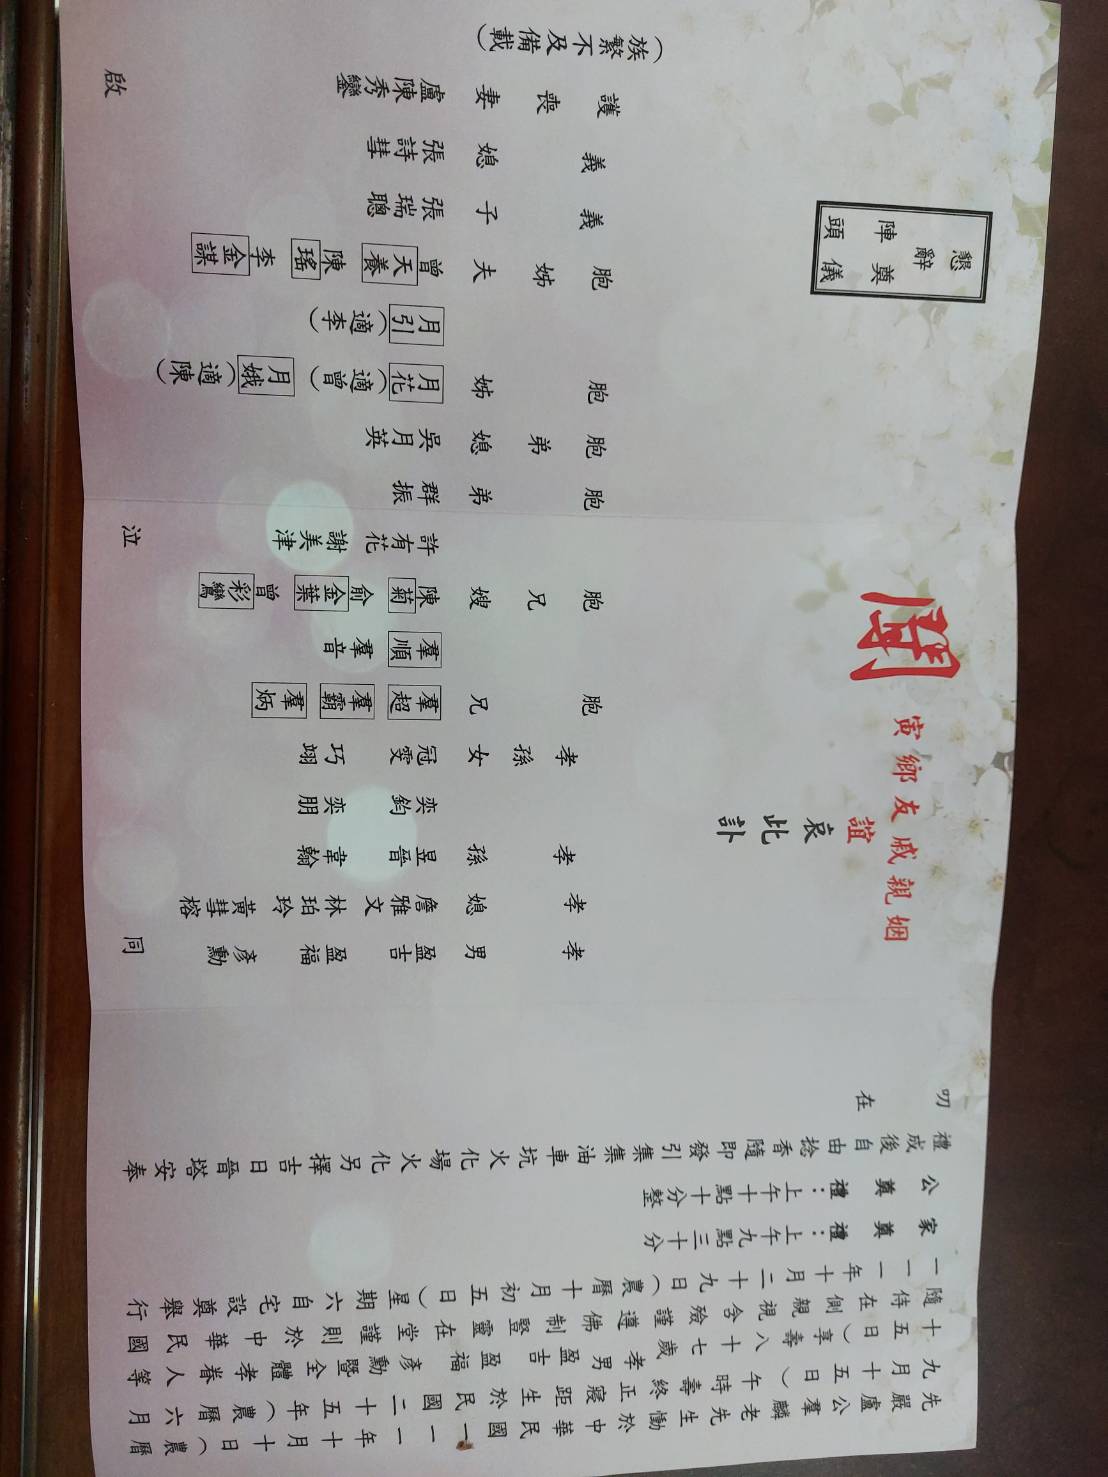 先嚴盧公羣麟老先生慟於中華民國一一一年十月十日(農曆
九月十五日)午時壽終正寢距生於民國二十五年(農曆六月
十五日)享壽八十七歲孝男盈吉盈福彥勳暨全體孝眷人等
隨侍在側親視含殮謹遵佛制豎靈在堂謹則於中華民國
一一一年十月二十九日(農曆十月初五日)星期六自宅設奠舉行
家奠禮:上午九點三十分
公奠禮:上午十點十分整
禮成後自由捻香隨即發引集集油車坑火化場火化另擇吉日晉塔安奉
叨在
姻親戚友鄉寅
誼哀此訃
聞
懇辭
奠儀
陣頭
孝男 盈吉 盈福 彥勳
孝媳 詹雅文 林珀玲 黃彗榕
孝孫 昱晉 韋翰
奕鈞 奕朋
孝孫女 冠雯 巧翊
胞兄 羣超 羣霸 羣炳
羣順 羣音
胞兄嫂 陳菊 俞金葉 曾彩鸞
許有花 謝美津
胞弟 群振
胞弟媳 吳月英
胞姊 月花(適曾) 月娥(適陳)
月引(適李)
胞姊夫 曾天養 陳瑤 李金謀
義子 張瑞聰
義媳 張詩彗
護喪妻 盧陳秀鑾
(族繁不及備載)
同泣啟